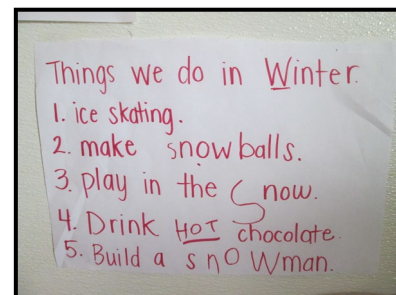 Things we do in Winter.
1. ice skating.
2. make snowballs.
3. play in the Snow.
4. Drink HOT chocolate.
5. Build a snOWman.